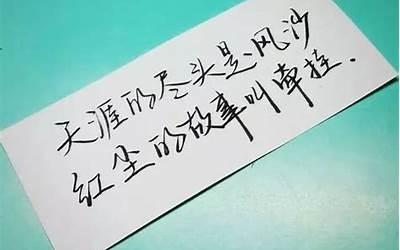 天涯的尽头是风沙
红尘的故事叫牵挂.